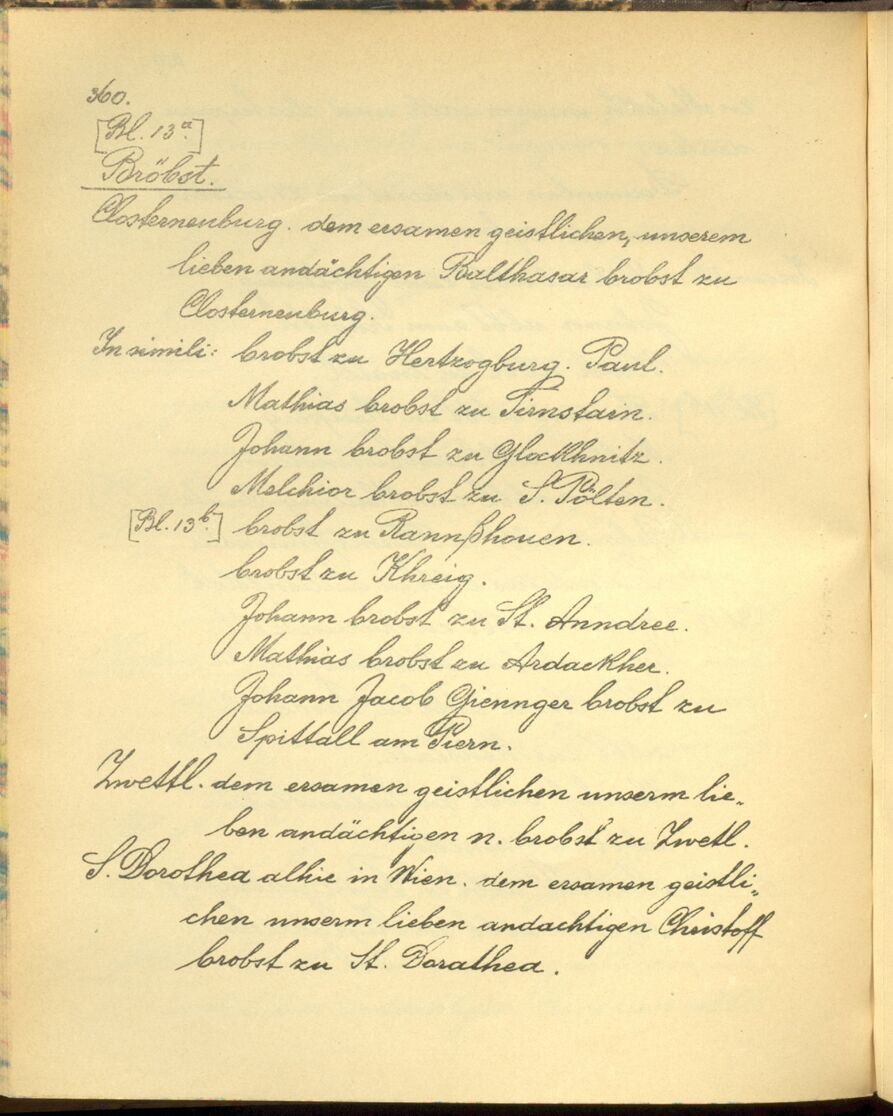 360.
[Bl. 13a.]
Bröbst.
Closterneuburg. dem ersamen geistlichen, unserem
lieben andächtigen Balthasar brobst zu
Closterneuburg.
In simili: brobst zu Hertzogburg. Paul.
Mathias brobst zu Tirnstain.
Johann brobst zu Glockhnitz.
Melchior brobst zu S. Pölten.
[Bl. 13b.] brobst zu Rannßhouen.
brobst zu Khreig.
Johann brobst zu St. Anndree.
Mathias brobst zu Ardackher.
Johann Jacob Giennger brobst zu
Spittall am Piern.
Zwettl. dem ersamen geistlichen unserm lie„
ben andächtigen n. brobst zu Zwetl.
S. Dorothea alhie in Wien. dem ersamen geistli„
chen unserm lieben andachtigen Christoff
brobst zu St. Dorathea.